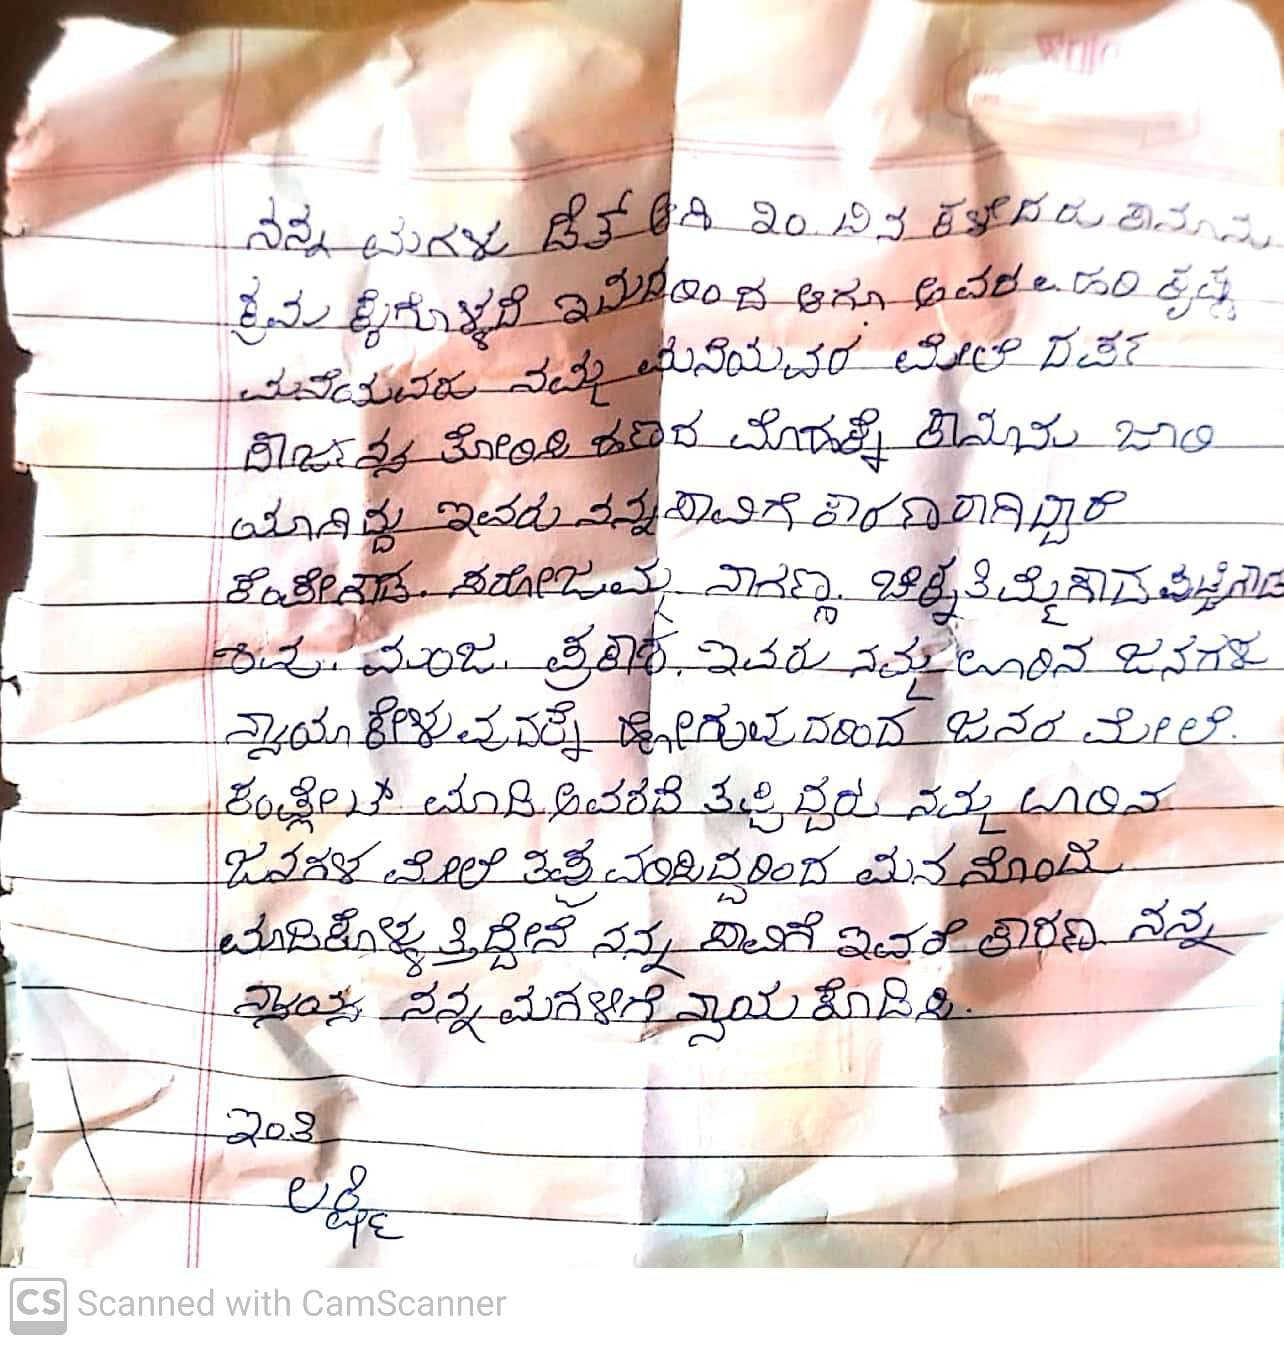 ನನ್ನ ಮಗಳು ಡೆತ್ ಆಗಿ ೩೦ ದಿನ ಕಳೇದರು ಕಾನೂನು
ಕ್ರಮ ಕೈಗೊಳ್ಳದೆ ಇವರಿಂದ ಆಗೂ ಅವರ ಹರಿ ಕೃಷ್ಣ
ಮನೆಯವರು ನಮ್ಮ ಮನೆಯವರ ಮೇಲೆ ದರ್ಪ
ತೋರಿಸಿ ಹಣದ ಕಾನೂನು ಜಾರಿ
ಯಾಗಿದ್ದು ಇವರು ನನ್ನ ಸಾವಿಗೆ ಕಾರಣರಾಗಿದ್ದಾರೆ
ಕೆಂಚೇಗೌಡ. ಸರೋಜಮ್ಮ ನಾಗಣ್ಣ. ಚಿಕ್ಕತಿಮ್ಮೈಗೌಡ ಪುಟ್ಟೆಗೌಡ
ಶಿವು. ಮಂಜ. ಪ್ರಕಾಶ. ಇವರು ನಮ್ಮ ಊರಿನ ಜನಗಳ
ನ್ಯಾಯ ಕೇಳುವುದಕ್ಕೆ ಹೋಗುವುದರಿಂದ ಜನರ ಮೇಲೆ.
ಕಂಪ್ಲೇಟ್ ಮಾಡಿ ಅವರದೆ ತಪ್ಪಿದ್ದರು ನಮ್ಮ ಊರಿನ
ಜನಗಳ ಮೇಲೆ ತಪ್ಪು ವಂದಿದ್ದರಿಂದ ಮನ ನೊಂದು
ಮಾಡಿಕೊಳ್ಳುತ್ತಿದ್ದೇನೆ ನನ್ನ ಸಾವಿಗೆ ಇವರೆ ಕಾರಣ. ನನ್ನ
ನನ್ನ ಮಗಳಿಗೆ ನ್ಯಾಯ ಕೊಡಿಸಿ.
ಇಂತಿ
ಲಕ್ಷ್ಮಿ
CS Scanned with CamScanner